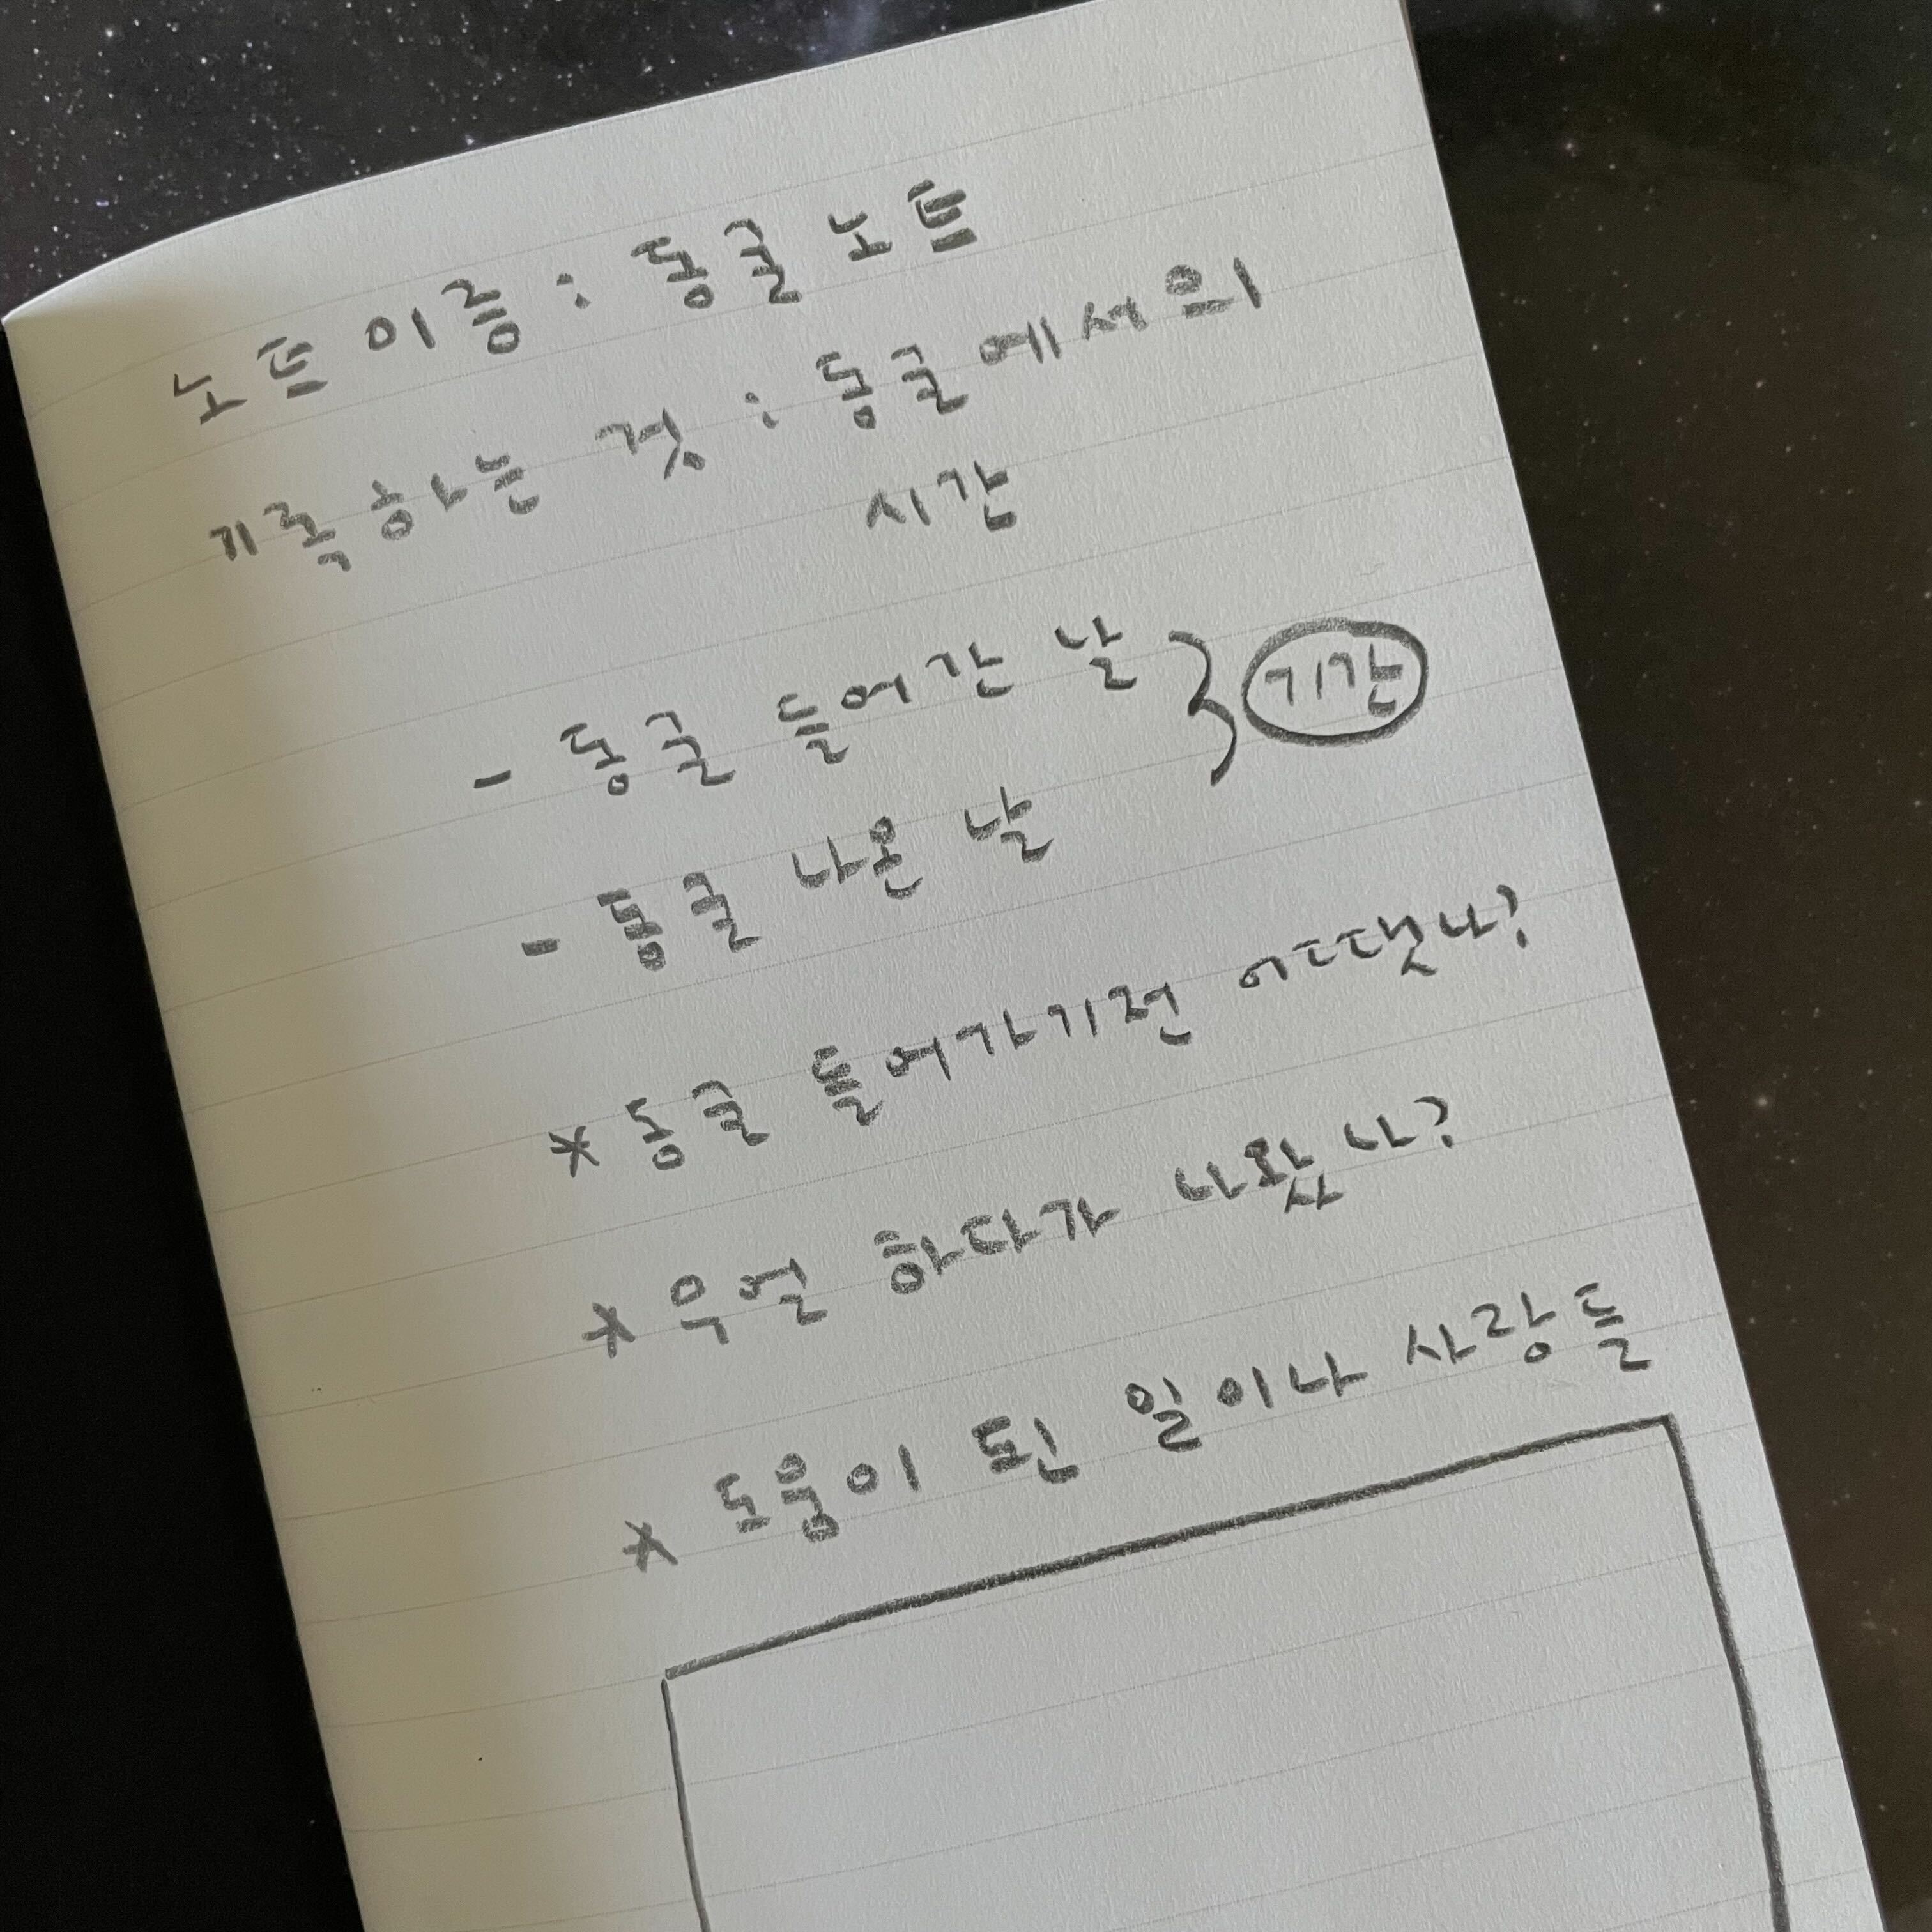 노트 이름 : 동굴 노트
기록하는 것 : 동굴에서의
시간
- 동굴 들어간 날 } 기간
- 동굴 나온 날
* 동굴 들어가기전 어땟나?
* 우얼 하다가 나왔나?
* 도움이 된 일이나 사랑들